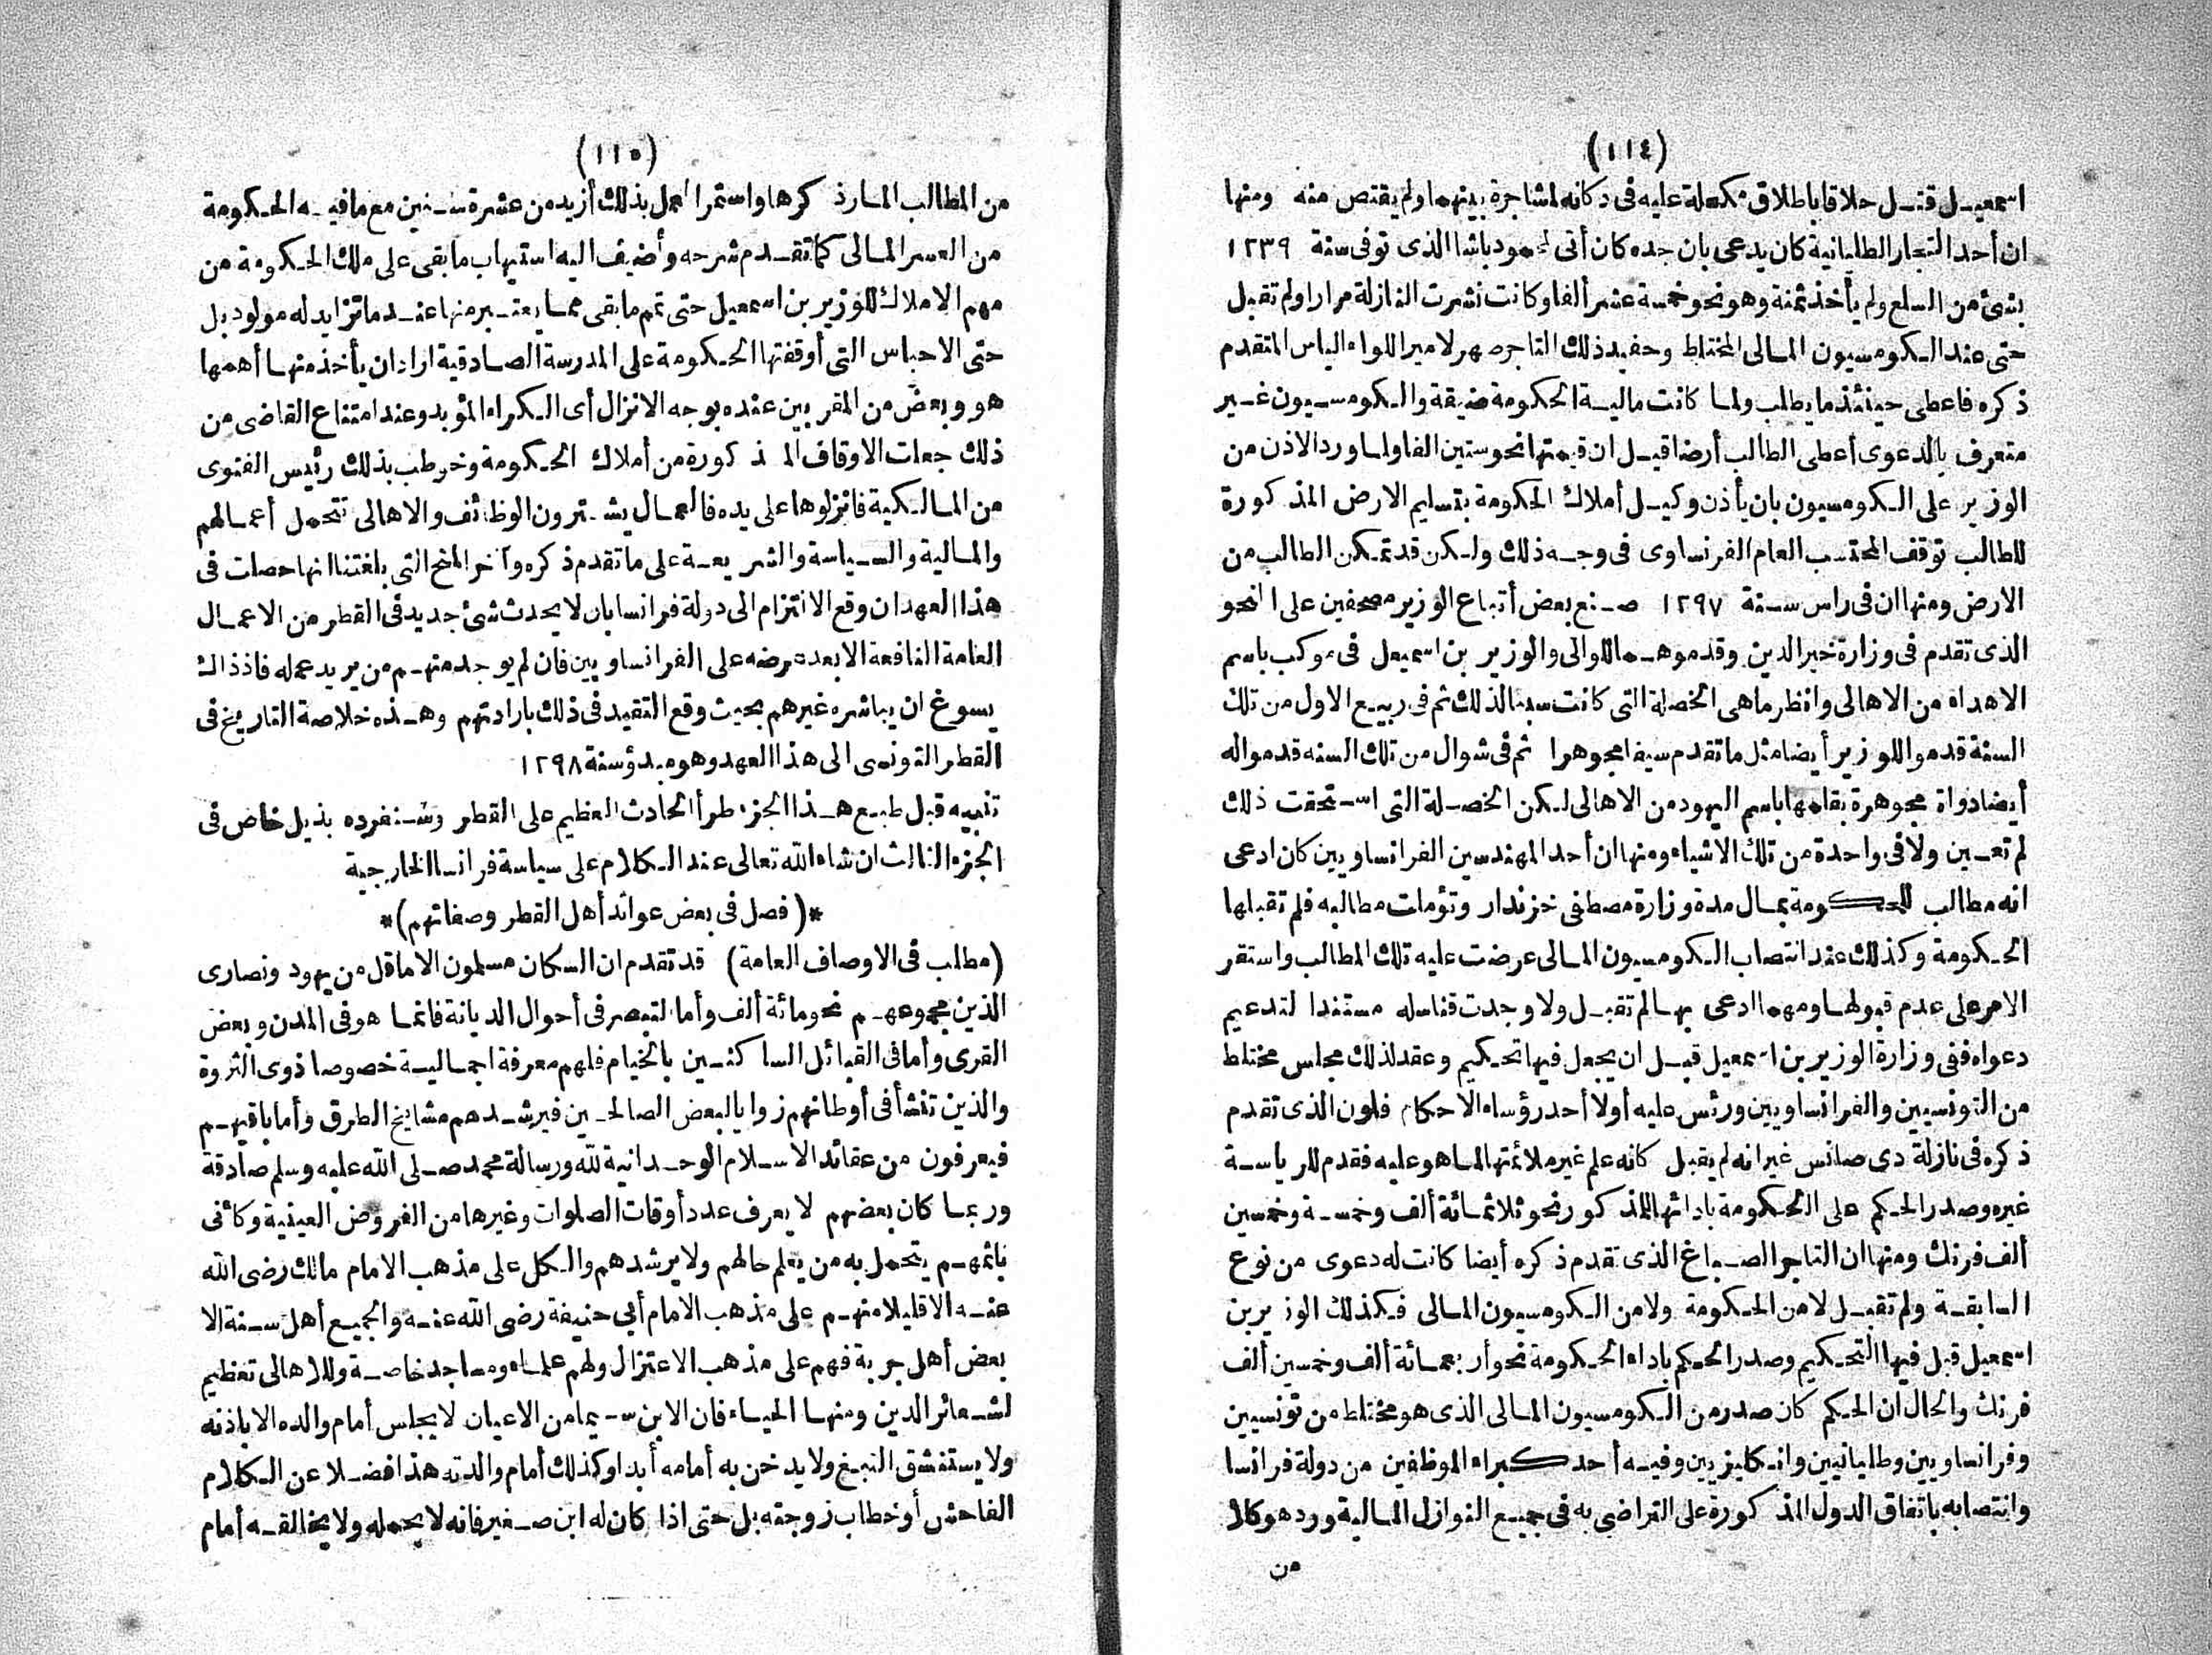 (١١٤)
اسمعيل قتل حلاقا باطلاق مكحلة عليه فى دكانه لمشاجرة بينهما ولم يقتص منه ومنها
ان أحد التجار الطليانية كان يدعى بان جده كان أتى لمحمود باشا الذى توفى سنة ١٢٣٩
بشئ من السلع ولم يأخذ ثمنة وهو نحو خمسة عشر ألفا وكانت نشرت النازلة مرارا ولم تقبل
حتى عند الكومسيون المالى المختلط وحفيد ذلك التاجر صهر لامير اللواء الياس المتقدم
ذكره فاعطى حينئذ ما يطلب ولما كانت مالية الحكومة ضيقة والكومسيون غير
متعرف بالدعوى أعطى الطالب أرضا قيل ان قيمتها نحو ستين الفا ولما ورد الاذن من
الوزير على الكومسيون بان يأذن وكيل أملاك الحكومة بتسليم الارض المذكورة
للطالب توقف المحتسب العام الفرنساوى فى وجه ذلك ولكن قد تمكن الطالب من
الارض ومنها ان فى راس سنة ١٢٩٧ صنع بعض أتباع الوزير مصحفين على النحو
الذى تقدم فى وزارة خير الدين وقدموهما للوالى والوزير بن اسمعيل فى موكب باسم
الاهداء من الاهالى وانظر ماهى الخصلة التى كانت سببا لذلك ثم فى ربيع الاول من تلك
السنة قدموا للوزير أيضا مثل ما تقدم سيفا مجوهرا ثم فى شوال من تلك السنه قدموا له
أيضا دواة مجوهرة بقلمها باسم اليهود من الاهالى لكن الخصلة التى استحقت ذلك
لم تعين ولا فى واحدة من تلك الاشياء ومنها ان أحد المهندسين الفرانساويين كان ادعى
انه مطالب للحكومة بمال مدة وزارة مصطفى خزندار وتؤملت مطالبه فلم تقبلها
الحكومة وكذلك عند انتصاب الكومسيون المالى عرضت عليه تلك المطالب واستقر
الامر على عدم قبولها ومهما ادعى بها لم تقبل ولا وجدت قناسله مستندا لتدعيم
دعواه ففى وزارة الوزير بن اسمعيل قبل ان يجعل فيها تحكيم وعقد لذلك مجلس مختلط
من التونسيين والفرانساويين ورئس عليه أولا أحد رؤساء الاحكام فلون الذى تقدم
ذكره فى نازلة دى صانس غير انه لم يقبل كانه علم غير ملائمتها لما هو عليه فقدم للرياسة
غيره وصدر الحكم على الحكومة بادائها للمذكور نحو ثلاثمائة ألف وخمسة وخمسين
ألف فرنك ومنها ان التاجر الصباغ الذى تقدم ذكره أيضا كانت له دعوى من نوع
السابقة ولم تقبل لا من الحكومة ولا من الكومسيون المالى فكذلك الوزير بن
اسمعيل قبل فيها التحكيم وصدر الحكم باداء الحكومة نحو أربعمائة ألف وخمسين ألف
فرنك والحال ان الحكم كان صدر من الكومسيون المالى الذى هو مختلط من تونسيين
وفرانساويين وطليانيين وانكليزيين وفيه أحد كبراء الموظفين من دولة فرانسا
وانتصابه باتفاق الدول المذكورة على التراضى به فى جميع النوازل المالية ورد هو كلا
من
(١١٥)
من المطالب المار ذكرها واستمر العمل بذلك أزيد من عشرة سنين مع ما فيه الحكومة
من العسر المالى كما تقدم شرحه وأضيف اليه استيهاب ما بقى على ملك الحكومة من
مهم الاملاك للوزير بن اسمعيل حتى تم ما بقى مما يعتبر منها عند ما تزايد له مولود بل
حتى الاحباس التى أوقفتها الحكومة على المدرسة الصادقية اراد ان يأخذ منها أهمها
هو وبعض من المقربين عنده بوجه الانزال أى الكراء المؤبد وعند امتناع القاضى من
ذلك جعلت الاوقاف المذكورة من أملاك الحكومة وخوطب بذلك رئيس الفتوى
من المالكية فانزلوها على يده فالعمال يشترون الوظائف والاهالى تتحمل أعمالهم
والمالية والسياسة والشريعة على ما تقدم ذكره وآخر المنح التى بلغتنا انها حصلت فى
هذا العهد ان وقع الالتزام الى دولة فرانسا بان لا يحدث شئ جديد فى القطر من الاعمال
العامة النافعة الا بعد عرضه على الفرانساويين فان لم يوجد منهم من يريد عمله فاذ ذاك
يسوغ ان يباشره غيرهم بحيث وقع التقيد فى ذلك بارادتهم وهذه خلاصة التاريخ فى
القطر التونسى الى هذا العهد وهو مبدؤ سنة ١٢٩٨
تنبيه قبل طبع هذا الجزء طرأ الحادث العظيم على القطر وسنفرده بذيل خاص فى
الجزء الثالث ان شاء الله تعالى عند الكلام على سياسة فرانسا الخارجية
*(فصل فى بعض عوائد أهل القطر وصفاتهم)*
(مطلب فى الاوصاف العامة) قد تقدم ان السكان مسلمون الا ما قل من يهود ونصارى
الذين مجموعهم نحو مائة ألف وأما التبصر فى أحوال الديانة فانما هو فى المدن وبعض
القرى وأما فى القبائل الساكنين بالخيام فلهم معرفة اجمالية خصوصا ذوى الثروة
والذين تنشأ فى أوطانهم زوايا لبعض الصالحين فيرشدهم مشايخ الطرق وأما باقيهم
فيعرفون من عقائد الاسلام الوحدانية لله ورسالة محمد صلى الله عليه وسلم صادقة
وربما كان بعضهم لا يعرف عدد أوقات الصلوات وغيرها من الفروض العينية وكائنى
باثمهم يتحمل به من يعلم حالهم ولا يرشدهم والكل على مذهب الامام مالك رضى الله
عنه الا قليلا منهم على مذهب الامام أبى حنيفة رضى الله عنه والجميع أهل سنة الا
بعض أهل جربة فهم على مذهب الاعتزال ولهم علماء ومساجد خاصة وللاهالى تعظيم
لشعائر الدين ومنها الحياء فان الابن سيما من الاعيان لا يجلس أمام والده الا باذنه
ولا يستنشق التبغ ولا يدخن به أمامه أبدا وكذلك أمام والدته هذا فضلا عن الكلام
الفاحش أو خطاب زوجته بل حتى اذا كان له ابن صغير فانه لا يحمله ولا يخالقه أمام